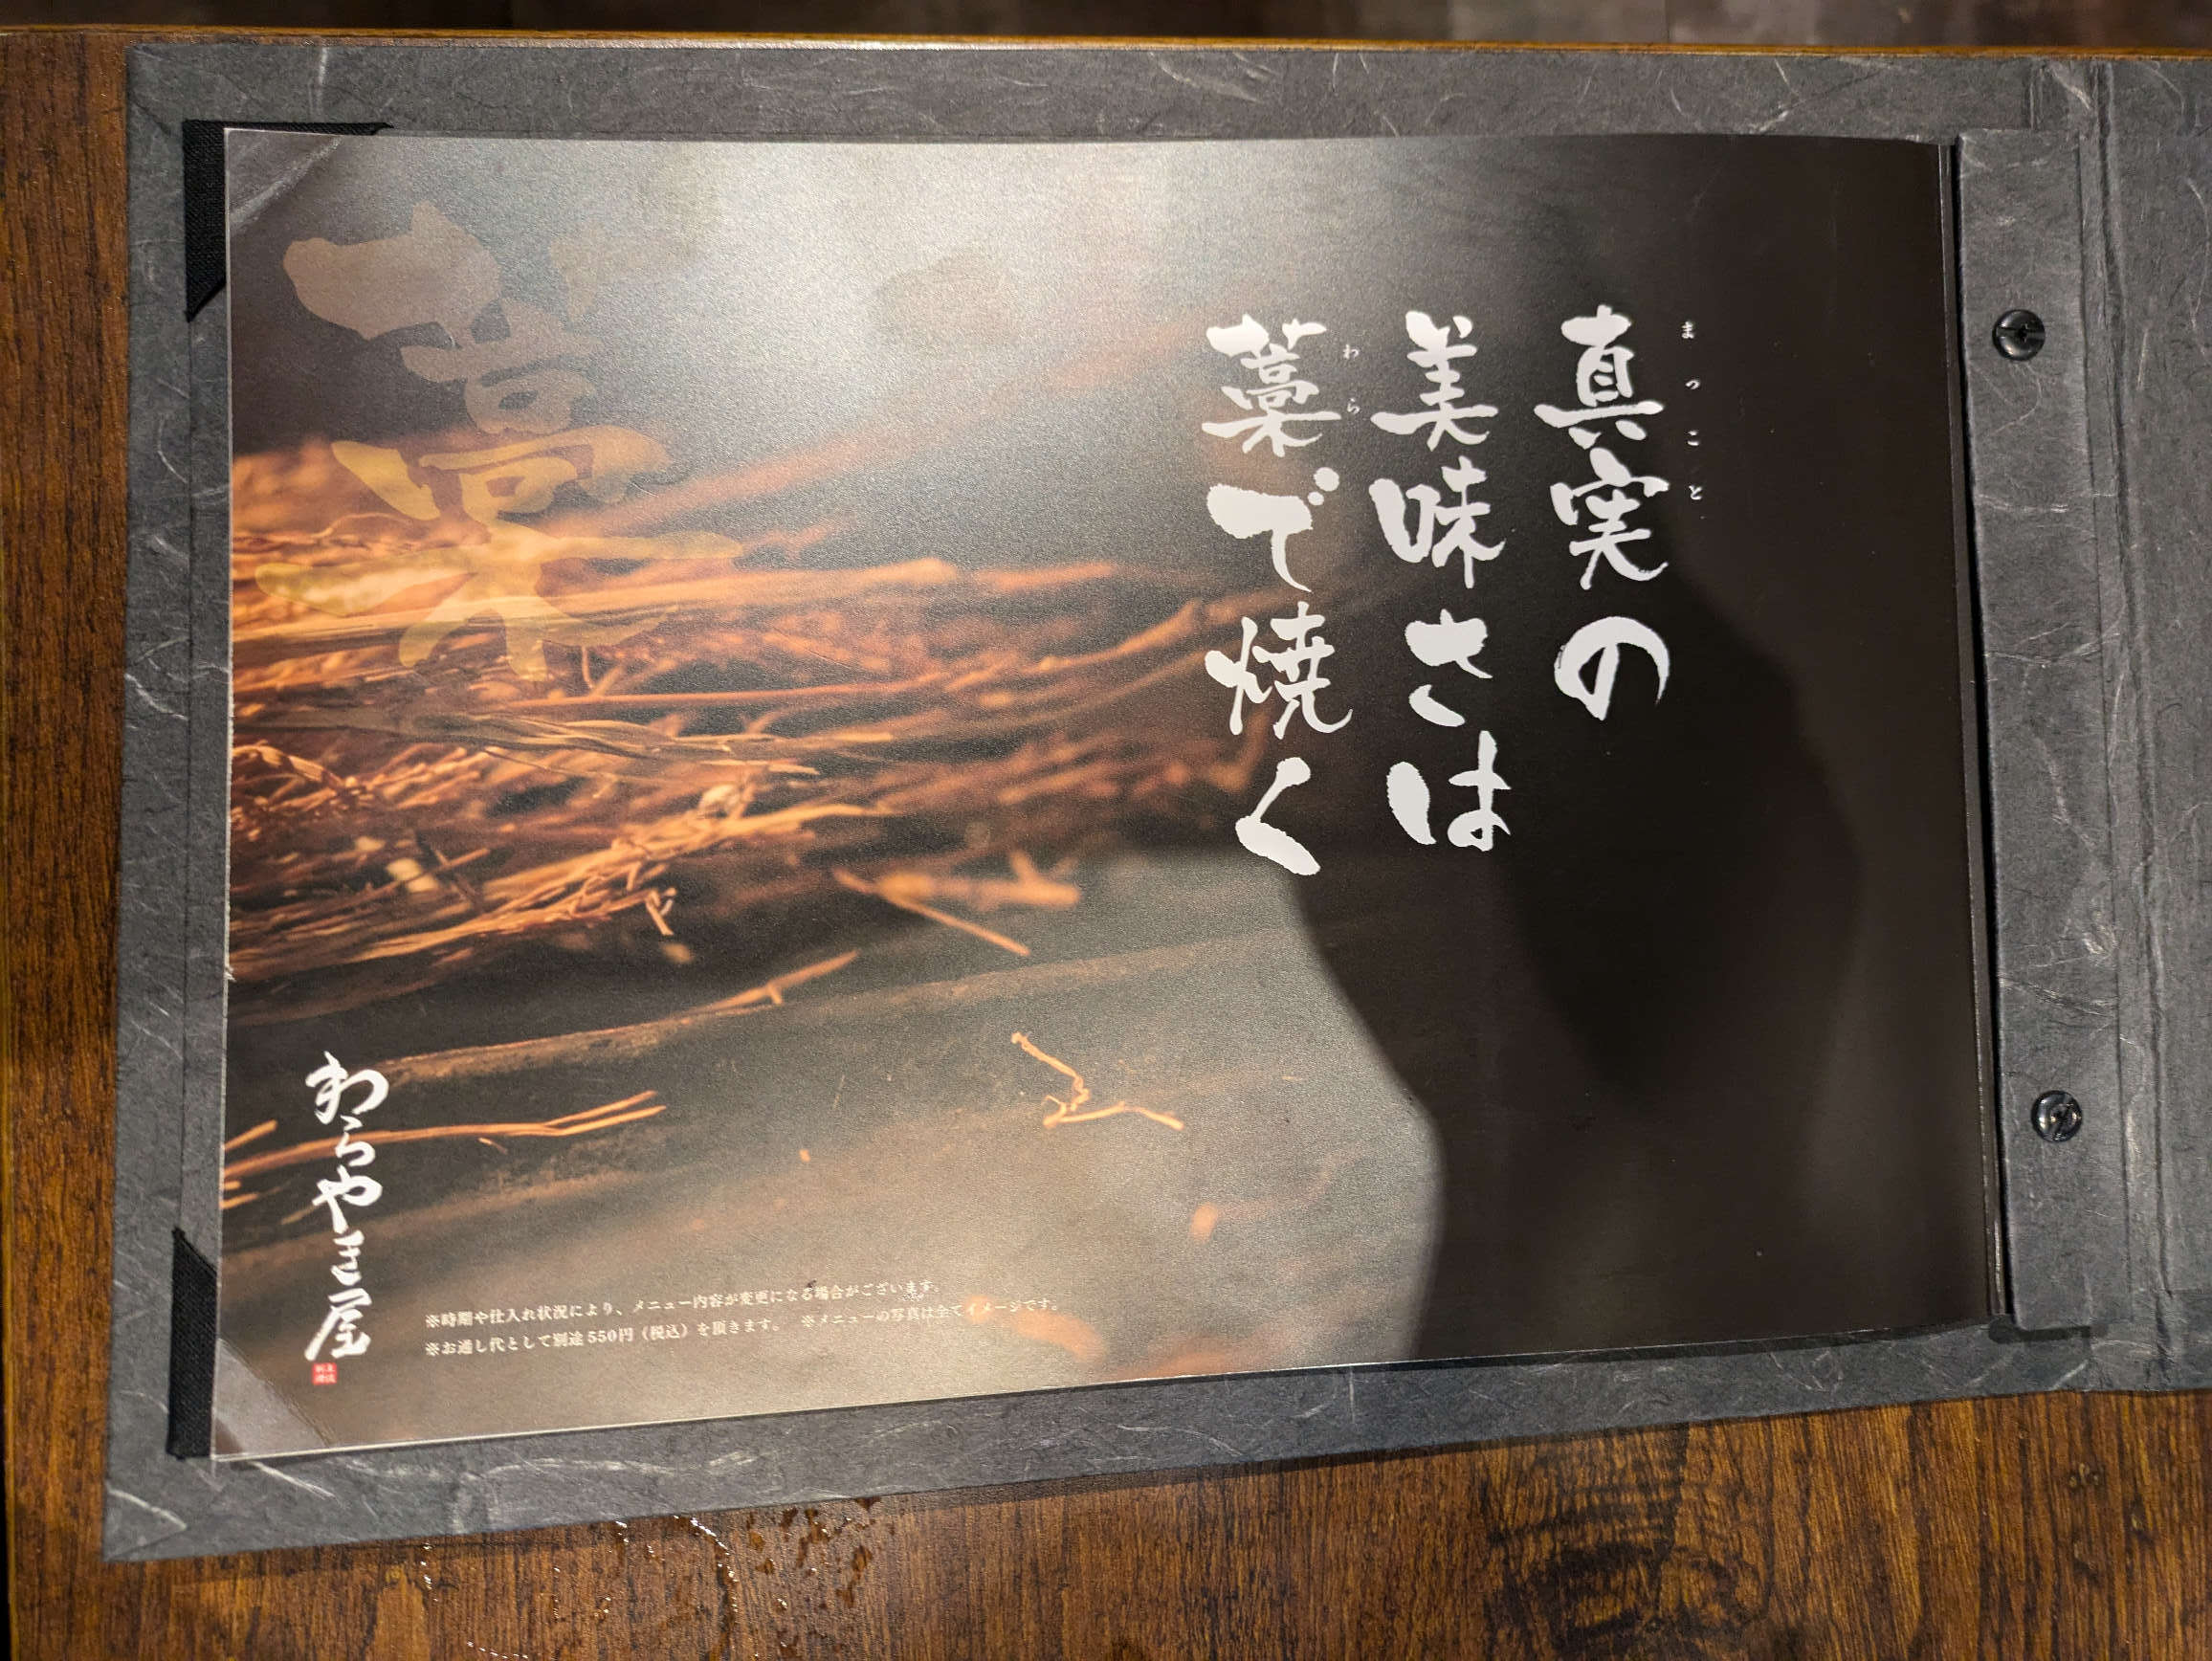 真実の
まっこと
美味さは
藁で焼く
わら
藁
わらやき屋
※時期や仕入れ状況により、メニュー内容が変更になる場合がございます。
※お通し代として別途550円（税込）を頂きます。　※メニューの写真は全てイメージです。